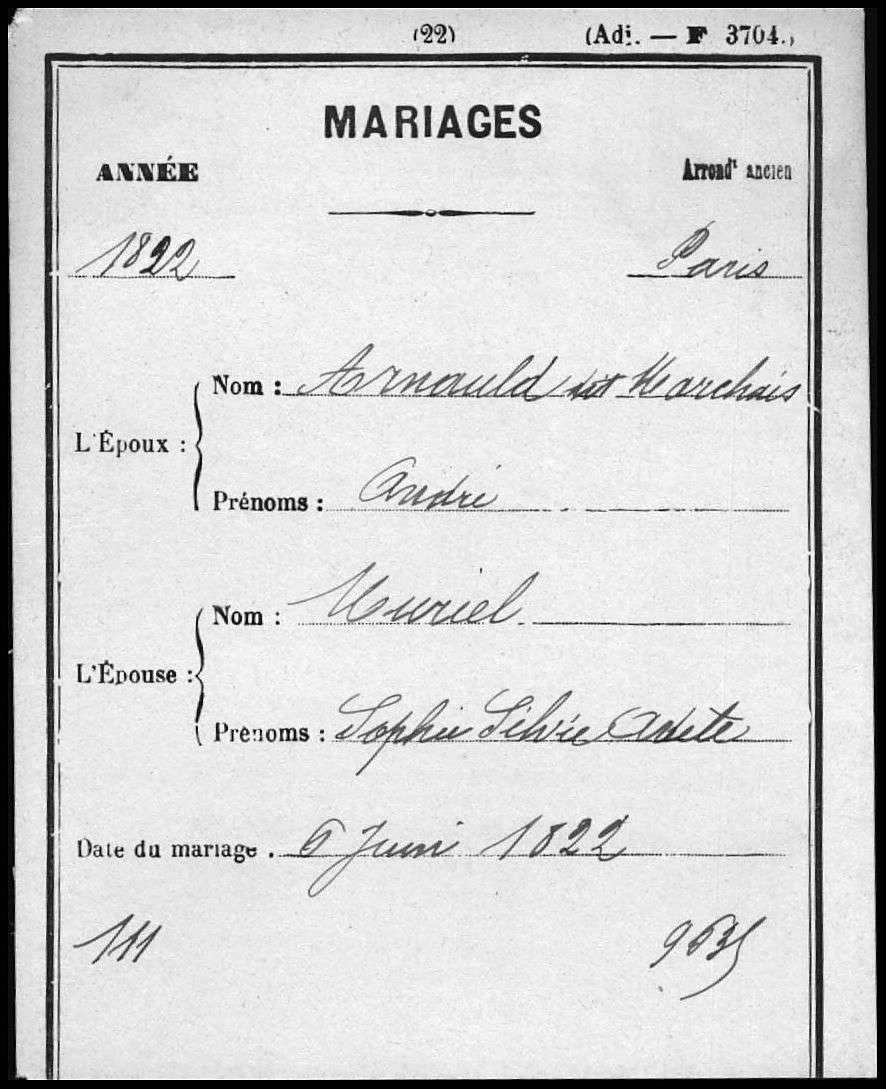 (22) (Adj. — F 3704.)
MARIAGES
ANNÉE Arrondt ancien
1822 Paris
Nom : Arnauld dit Marchais
L'Époux :
Prénoms : André
Nom : Muriel
L'Épouse :
Prénoms : Sophie Silvie Adète
Date du mariage . 6 Juin 1822
111 9635